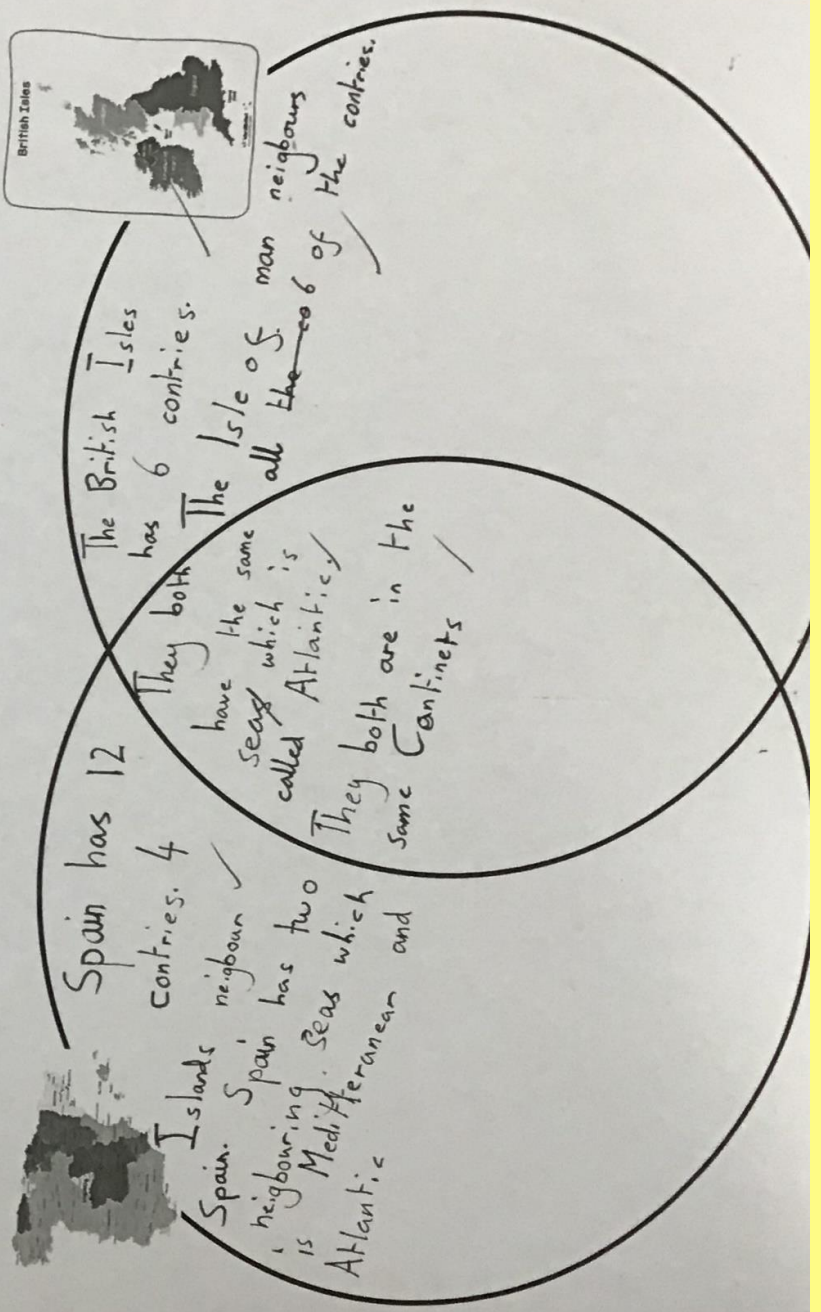 Spain has 12
contries. 4
Islands neigbour
Spain. Spain has two
neigbouring seas which
is Meditteranean and
Atlantic
They both
have the same
seas which is
called Atlantic.
They both are in the
same Continets
The British Isles
has 6 contries.
The Isle of man neigbours
all the co 6 of the contries.
British Isles